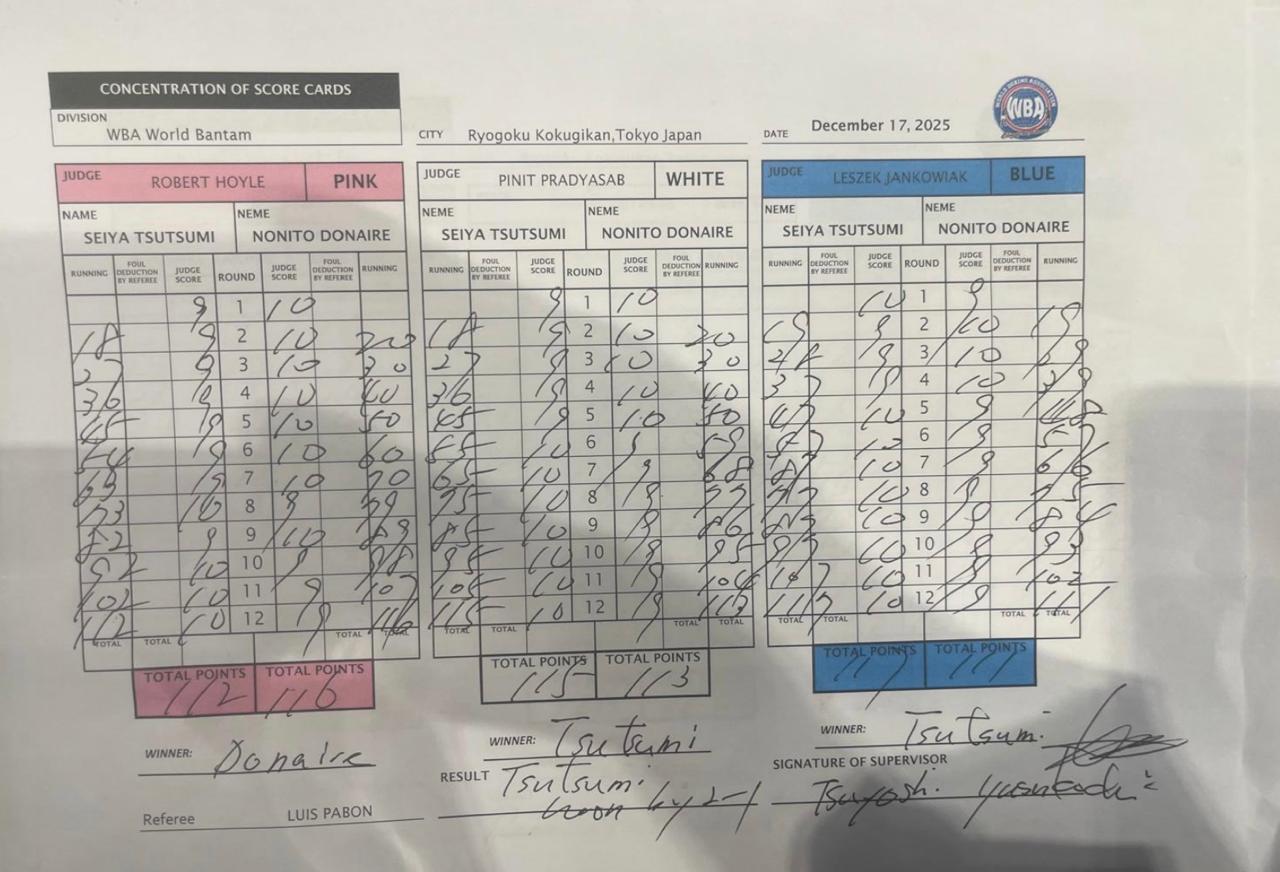 CONCENTRATION OF SCORE CARDS
DIVISION WBA World Bantam CITY Ryogoku Kokugikan,Tokyo Japan DATE December 17, 2025 WBA
JUDGE ROBERT HOYLE PINK JUDGE PINIT PRADYASAB WHITE JUDGE LESZEK JANKOWIAK BLUE
NAME NEME NEME NEME NEME NEME
SEIYA TSUTSUMI NONITO DONAIRE SEIYA TSUTSUMI NONITO DONAIRE SEIYA TSUTSUMI NONITO DONAIRE
RUNNING FOUL DEDUCTION BY REFEREE JUDGE SCORE ROUND JUDGE SCORE FOUL DEDUCTION BY REFEREE RUNNING RUNNING FOUL DEDUCTION BY REFEREE JUDGE SCORE ROUND JUDGE SCORE FOUL DEDUCTION BY REFEREE RUNNING RUNNING FOUL DEDUCTION BY REFEREE JUDGE SCORE ROUND JUDGE SCORE FOUL DEDUCTION BY REFEREE RUNNING
9 1 10 9 1 10 10 1 9
18 9 2 10 20 18 9 2 10 20 19 9 2 10 19
27 9 3 10 30 27 9 3 10 30 28 9 3 10 29
36 9 4 10 40 36 9 4 10 40 37 9 4 10 39
45 9 5 10 50 45 9 5 10 50 47 10 5 9 48
54 9 6 10 60 55 10 6 9 59 57 10 6 9 57
63 9 7 10 70 65 10 7 9 68 67 10 7 9 66
73 10 8 9 79 75 10 8 9 77 77 10 8 9 75
82 9 9 10 89 85 10 9 9 86 87 10 9 9 84
92 10 10 9 98 95 10 10 9 95 97 10 10 9 93
102 10 11 9 107 105 10 11 9 104 107 10 11 9 102
112 10 12 9 116 115 10 12 9 113 117 10 12 9 111
TOTAL TOTAL TOTAL TOTAL TOTAL TOTAL TOTAL TOTAL TOTAL TOTAL TOTAL TOTAL
TOTAL POINTS TOTAL POINTS TOTAL POINTS TOTAL POINTS TOTAL POINTS TOTAL POINTS
112 116 115 113 117 111
WINNER: Donaire WINNER: Tsutsumi WINNER: Tsutsumi
RESULT Tsutsumi SIGNATURE OF SUPERVISOR
won by 2-1 Tsuyoshi
Referee LUIS PABON